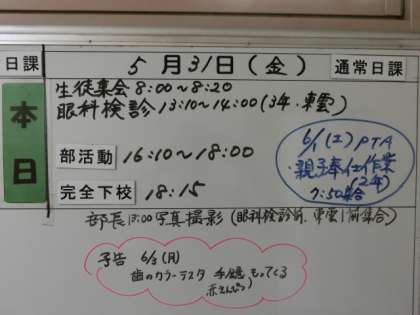 日課
5月31日(金)
通常日課
本日
生徒集会 8:00〜8:20
眼科検診 13:10〜14:00(3年、東雲)
部活動 16:10〜18:00
完全下校 18:15
6/1(土)PTA
親子奉仕作業
(2年)
7:50集合
部長13:00写真撮影(眼科検診前、東雲1前集合)
予告 6/3(月)
歯のカラーテスタ 手鏡 もってくる
赤えんぴつ